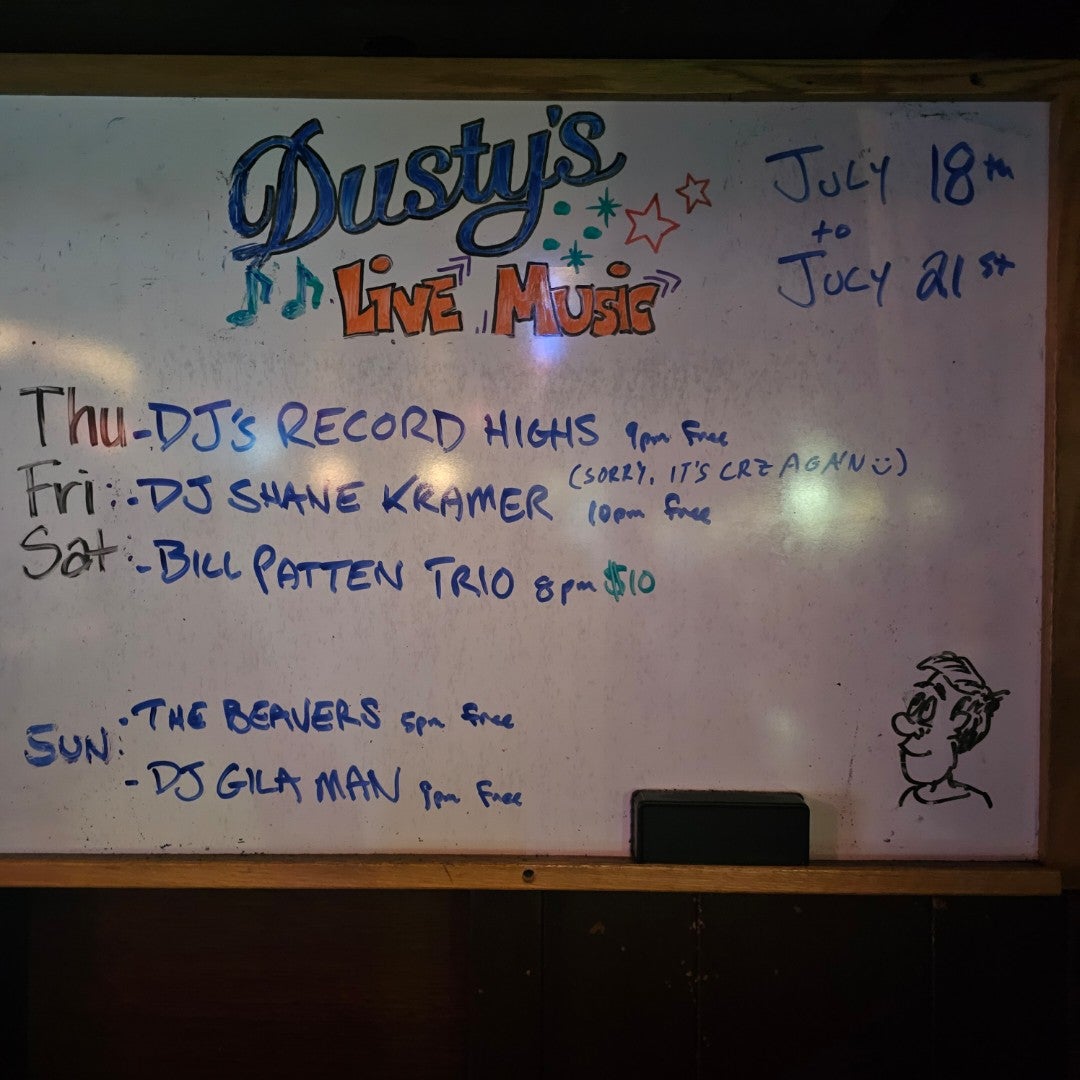 Dusty's
Live Music
July 18th
to
July 21st
Thu - DJ's RECORD HIGHS 9pm Free
(SORRY, IT'S CRZ AGAIN ☺)
Fri: - DJ SHANE KRAMER 10pm Free
Sat: - BILL PATTEN TRIO 8pm $10
SUN: · THE BEAVERS 5pm Free
- DJ GILA MAN 9pm Free